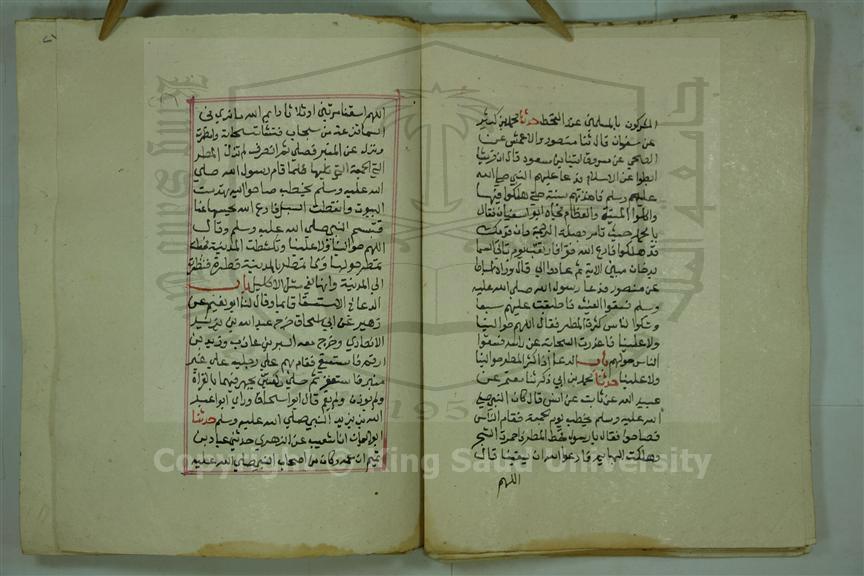 المشركون بالمسلمين عند القحط حدثنا محمد بن كثير
عن سفيان قال ثنا منصور والاعمش عن
الضحى عن مسروق اتيت ابن مسعود قال ان قريشا
ابطوا عن الاسلام فدعا عليهم النبي صلى الله
عليه وسلم فاخذتهم سنة حتى هلكوا فيها
واكلوا الميتة والعظام فجاه ابو سفيان فقال
يا محمد جيت تامر بصلة الرحم وان قومك
قد هلكوا فادع الله فقرا فارتقب يوم تاتي السما
بدخان مبين الاية ثم عادوا الى قال وزاد اسباط
عن منصور فدعا رسول الله صلى الله عليه
وسلم فسقوا الغيث فاطبقت عليهم سبعا
وشكوا الناس كثرة المطر فقال اللهم حوالينا
ولا علينا فانحدرت السحابة عن راسه فسقوا
الناس حولهم باب الدعا اذا كثر المطر حوالينا
ولا علينا حدثنا محمد بن ابي بكر ثنا معتمر عن
عبيد الله عن ثابت عن انس قال كان النبي صلى
الله عليه وسلم يخطب يوم جمعة فقام الناس
فصاحوا فقالوا يا رسول الله قحط المطر واحمرت الشجر
وهلكت البهايم فادعوا الله ان يسقينا قال
اللهم
اللهم اسقنا مرتين او ثلاثا وايم الله ما نرى في
السما قزعة من سحاب فنشات سحابة وامطرت
ونزل عن المنبر فصلى ثم انصرف لم تزل المطر
الى الجمعة التي تليها فلما قام رسول الله صلى
الله عليه وسلم يخطب صاحوا اليه تهدمت
البيوت وانقطعت السبل فادع الله يحبسها عنا
فتبسم النبي صلى الله عليه وسلم وقال
اللهم حوالينا ولا علينا وتكشطت المدينة فجعلت
تمطر حولها وما تمطر بالمدينة قطرة فنظرت
الى المدينة وانها لفي مثل الاكليل باب
الدعا في الاستسقا قايما وقال لنا ابو نعيم عن
زهير عن ابي اسحاق خرج عبد الله بن يزيد
الانصاري وخرج معه البر بن عازب وزيد بن
ارقم فاستسقى فقام بهم على رجليه على غير
منبر فاستغفر ثم صلى ركعتين يجهر فيهما بالقراة
ولم يوذن ولم يقم قال ابو اسحاق وراى ابو عبيد
الله بن يزيد النبي صلى الله عليه وسلم حدثنا
ابو اليمان انا شعيب عن الزهري حدثني عباد بن
تميم ان عمه وكان من اصحاب النبي صلى الله عليه
جامعة الملك سعود
1957
Copyright © King Saud University